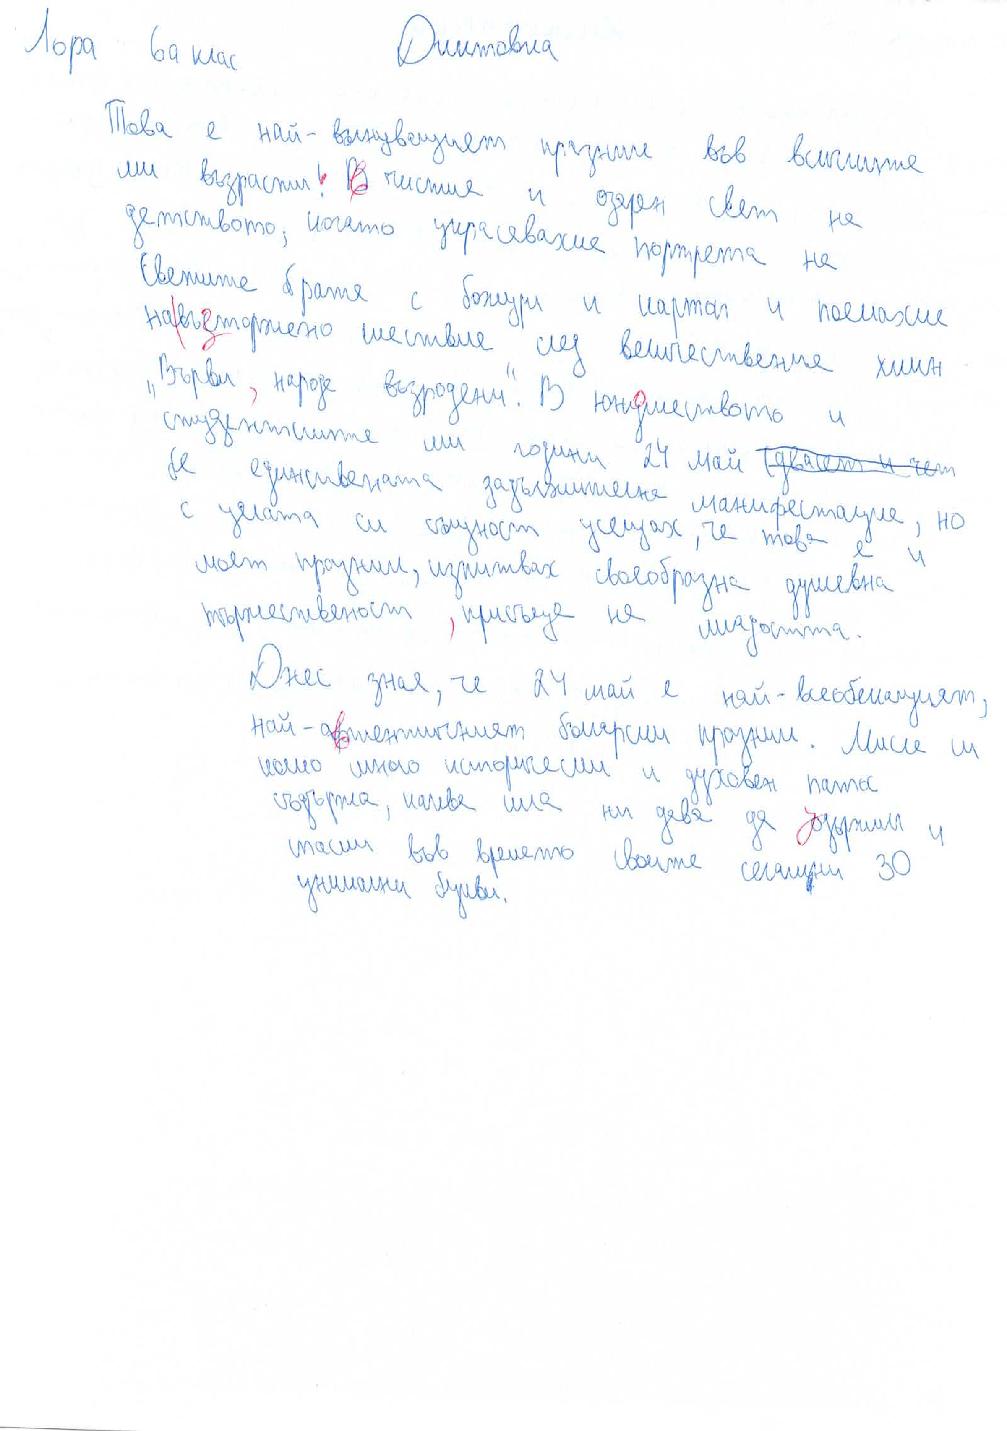 Лора 6а клас Диктовка
Това е най-вълнуващият празник във всичките
ми възрасти! В чистия и озарен свят на
детството, когато украсявахме портрета на
Светите братя с божури и картал и поемахме
навъзторжено шествие след величествения химн
„Върви, народе възродени". В юношеството и
студентските ми години 24 май (двайсет и чет
бе единствената задължителна манифестация, но
с цялата си същност усещах, че това е и
моят празник, изпитвах своеобразна душевна
тържественост, присъща на младостта.
Днес зная, че 24 май е най-всеобемащият,
най-автентичният български празник. Мисля си
колко много исторически и духовен патос
съдържа, каква сила ни дава да удържим и
спасим във времето своите сегашни 30
уникални букви.